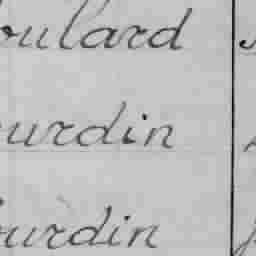 oulard
ourdin
ourdin